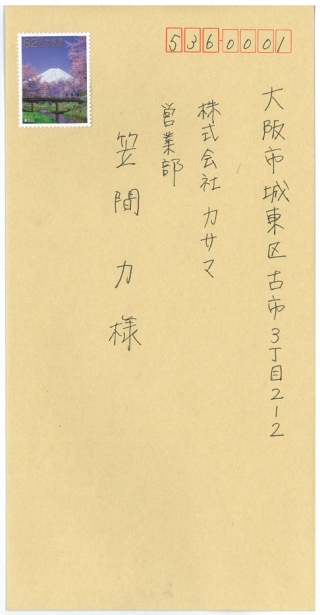 82
536-0001
大阪市城東区古市3丁目2-2
株式会社カサマ
営業部
笠間力様